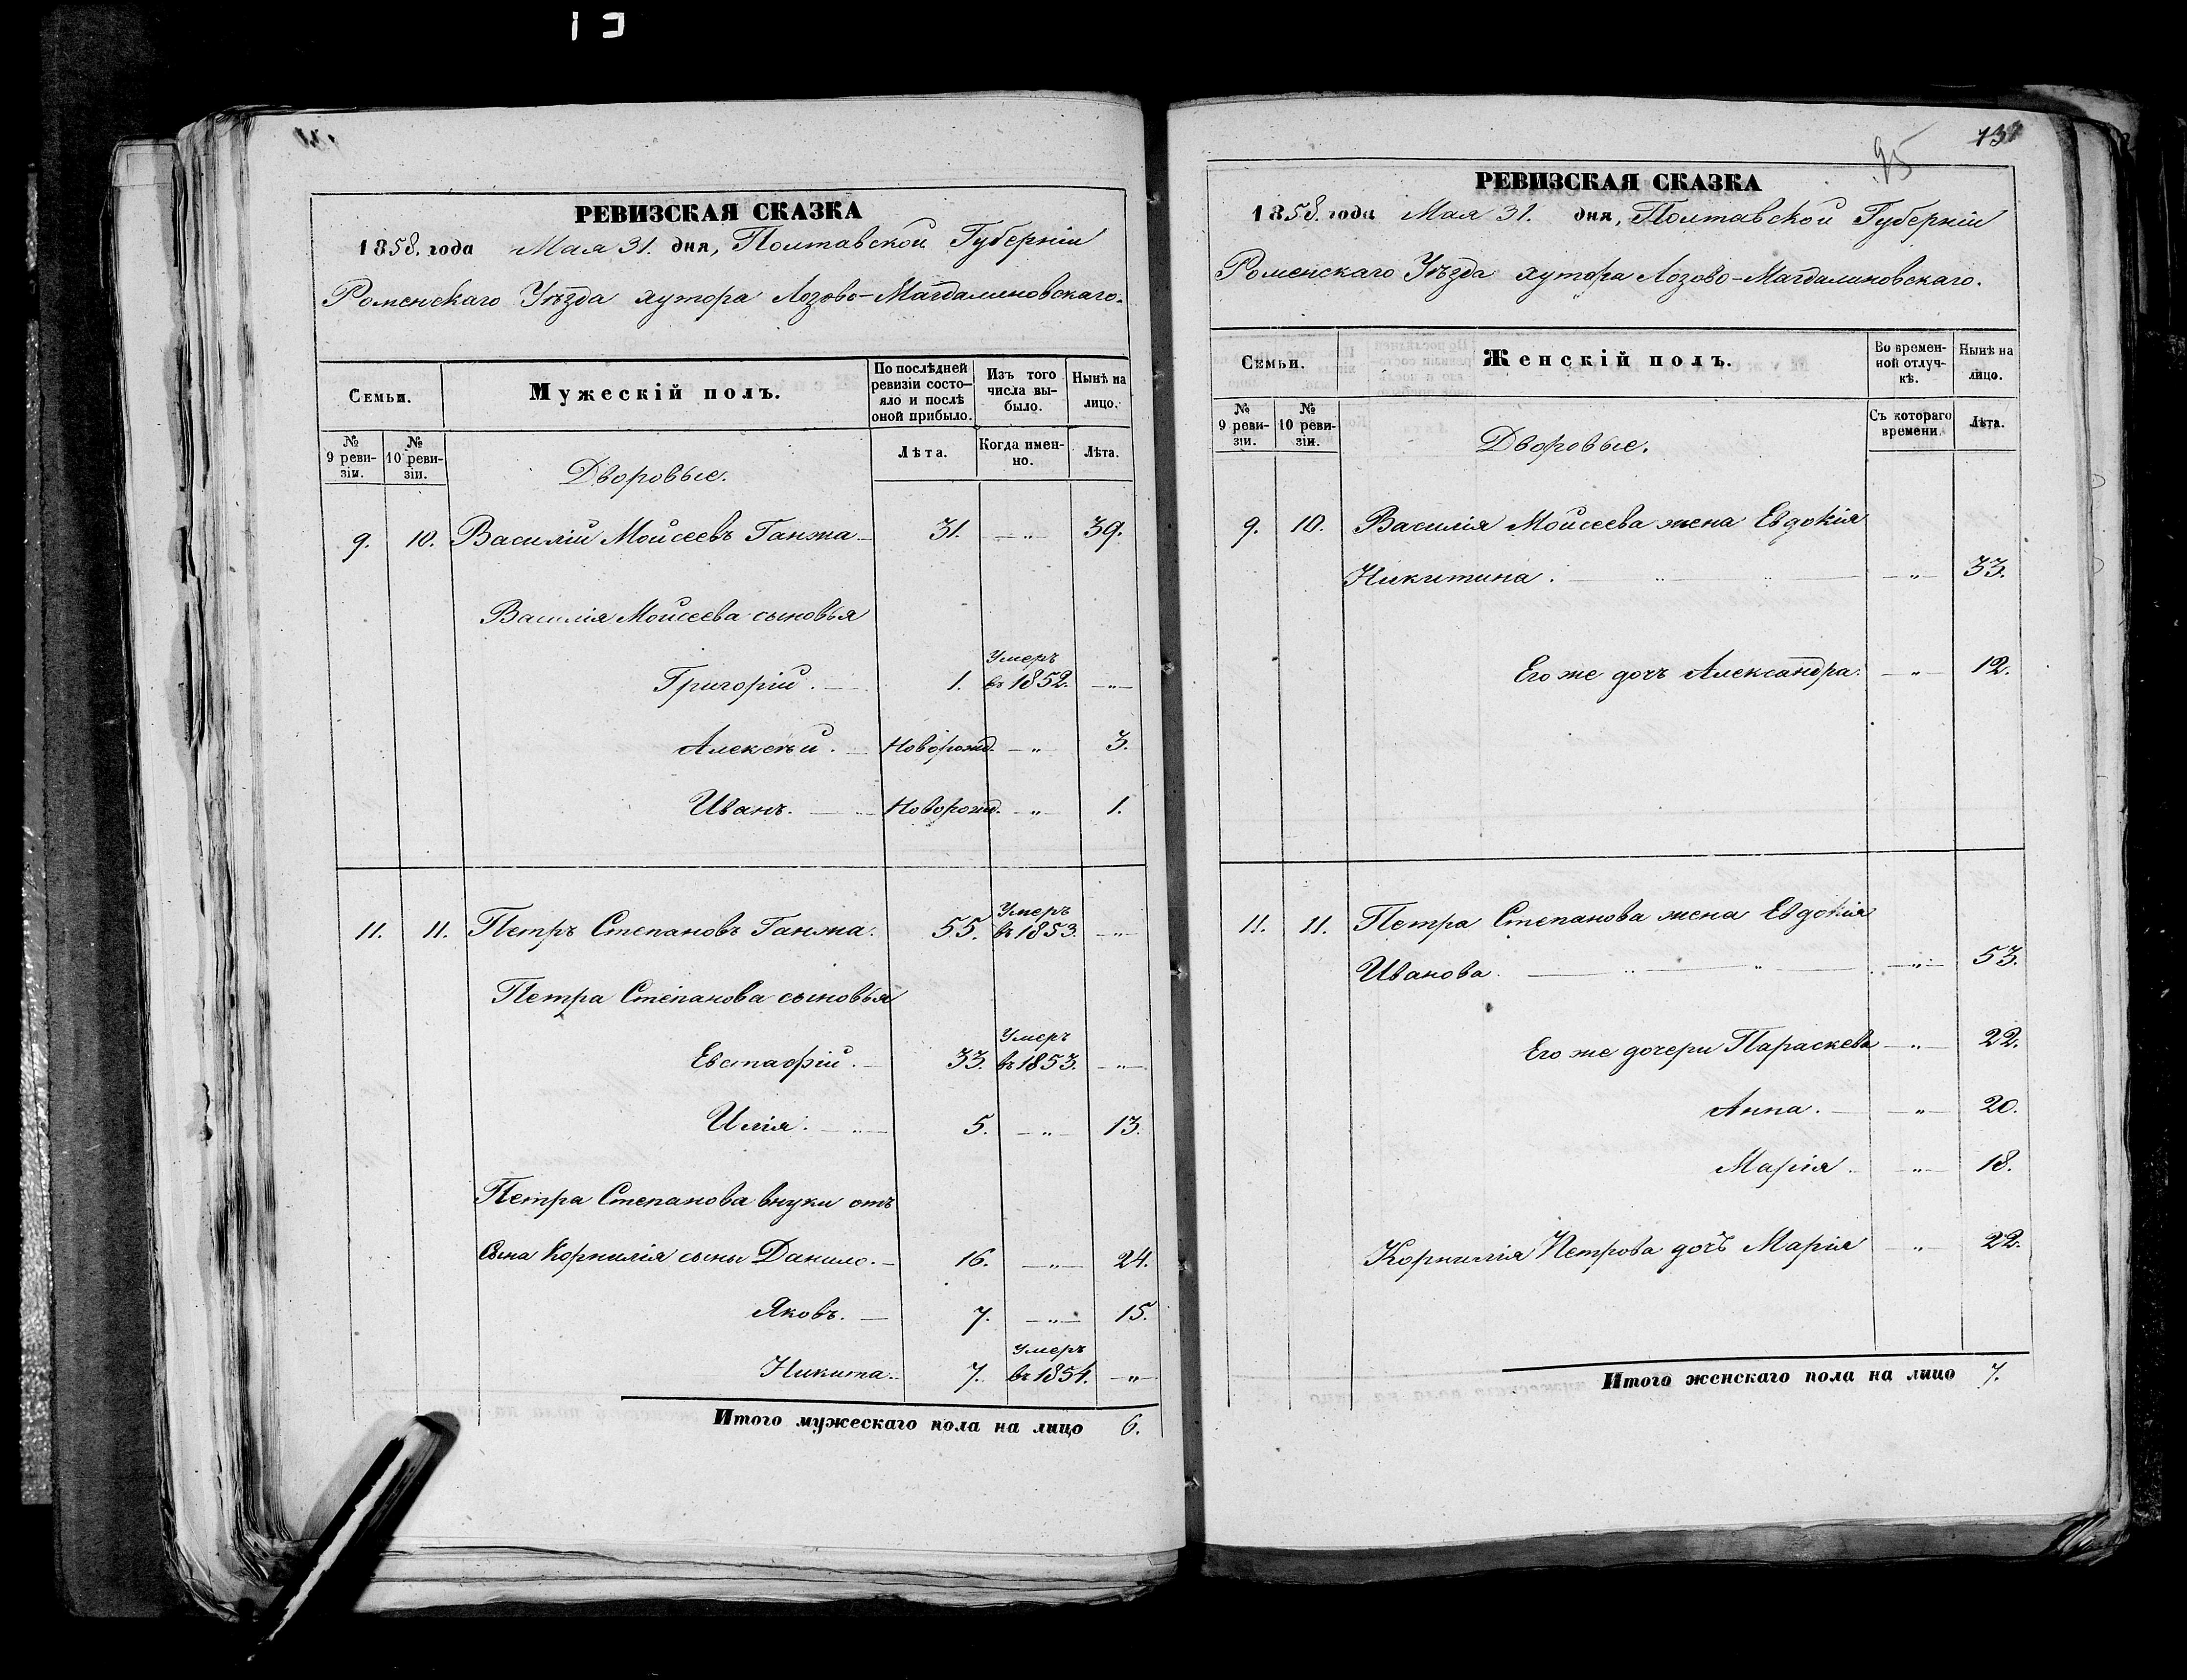 РЕВИЗСКАЯ СКАЗКА
1858. года Мая 31. дня, Полтавской Губерніи
Роменскаго Уѣзда хутора Лозово-Магдалиновскаго.
Семьи. Мужескій полъ. По послѣдней ревизіи состояло и послѣ оной прибыло. Изъ того числа выбыло. Нынѣ на лицо.
№ 9 ревизіи. № 10 ревизіи. Дворовые. Лѣта. Когда именно. Лѣта.
9. 10. Василій Моисеевъ Ганжа 31. — „ — 39.
Василія Моисеева сыновья
Григорій. 1. Умеръ въ 1852. — „ —
Алексѣй. Новорожд. — „ 3.
Иванъ. Новорожд. — „ 1.
11. 11. Петръ Степановъ Ганжа. 55. Умеръ въ 1853. — „ —
Петра Степанова сыновья
Евстафій. 33. Умеръ въ 1853. — „ —
Илія. 5. — „ — 13.
Петра Степанова внуки отъ
Сына Корнилія сыны Данило. 16. — „ — 24.
Яковъ. 7. — „ — 15.
Никита. 7. Умеръ въ 1854. — „ —
Итого мужескаго пола на лицо 6.
95
РЕВИЗСКАЯ СКАЗКА
1858. года Мая 31. дня, Полтавской Губерніи
Роменскаго Уѣзда хутора Лозово-Магдалиновскаго.
Семьи. Женскій полъ. Во временной отлучкѣ. Нынѣ на лицо.
№ 9 ревизіи. № 10 ревизіи. Дворовые. Съ котораго времени. Лѣта.
9. 10. Василія Моисеева жена Евдокія
Никитина. — „ — 33.
Его же дочь Александра. — „ — 12.
11. 11. Петра Степанова жена Евдокія
Иванова. — „ — 53.
Его же дочери Параскева — „ — 22.
Анна. — „ — 20.
Марія — „ — 18.
Корнилія Петрова дочь Марія — „ — 22.
Итого женскаго пола на лицо 7.